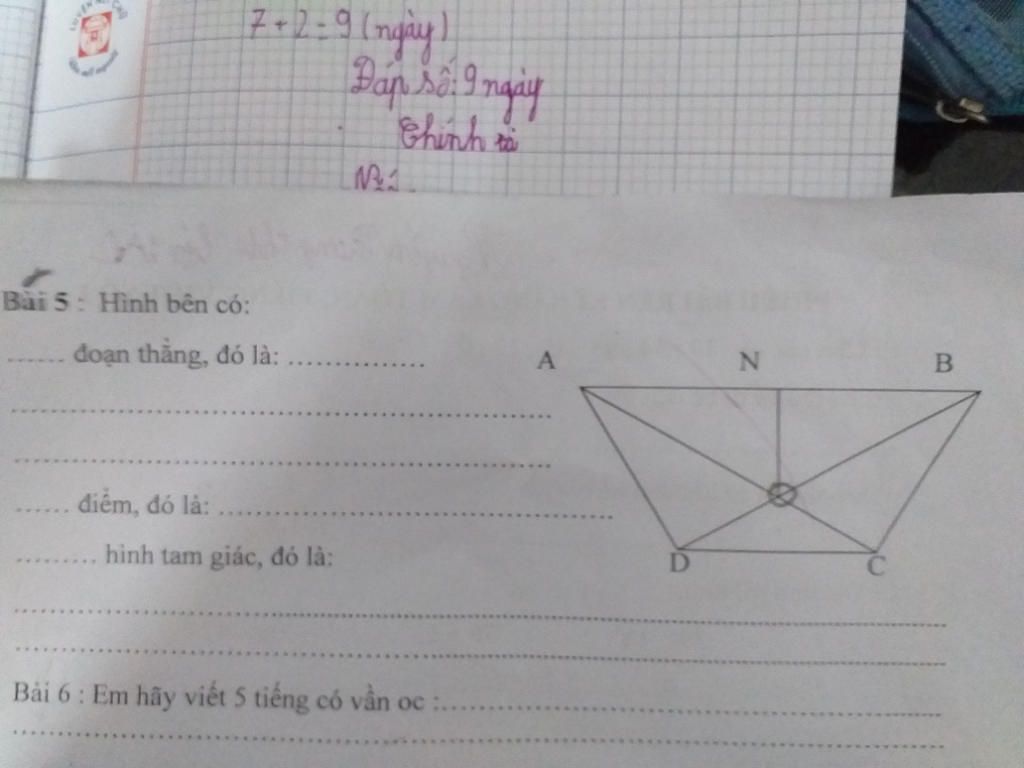 7 + 2 = 9 (ngày)
Đáp số: 9 ngày
Chính tả
Bài 5 : Hình bên có:
....... đoạn thẳng, đó là: ................
A N B
...... điểm, đó là: ..................................................
......... hình tam giác, đó là:
D C
Bài 6 : Em hãy viết 5 tiếng có vần oc :................................................